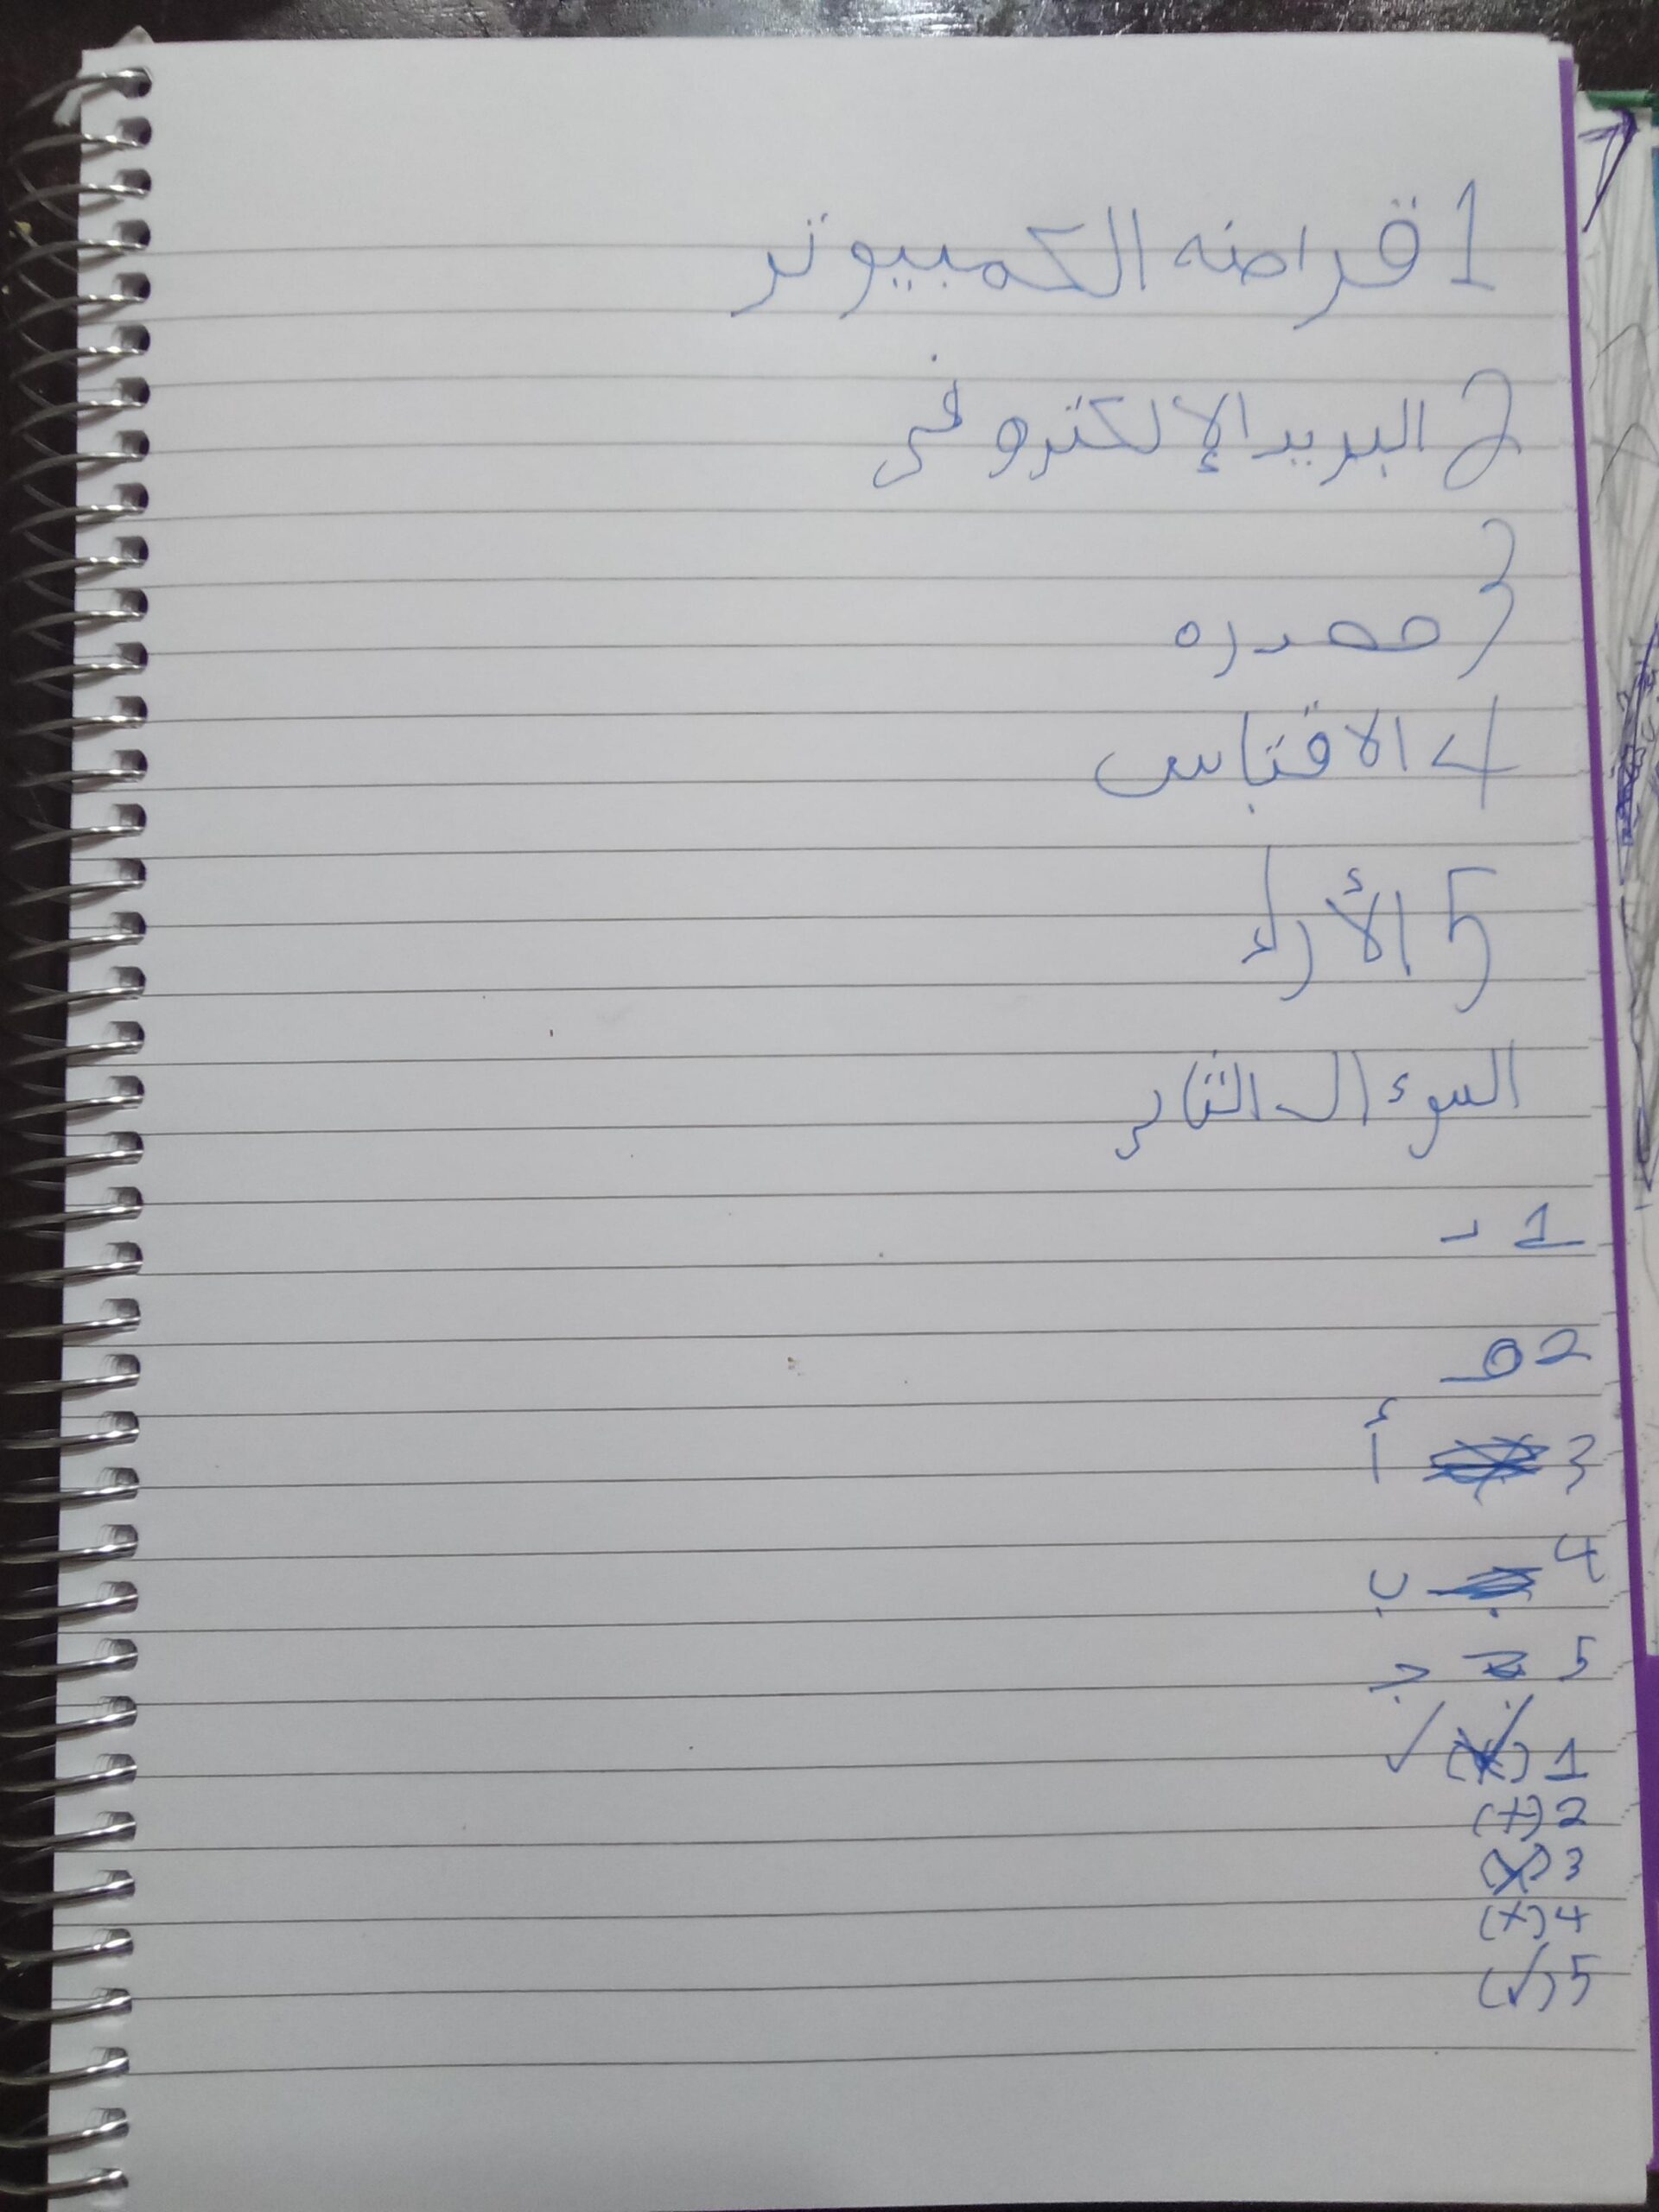 1 قراصنه الكمبيوتر
2 البريد الإلكتروني
3 مصدره
4 الاقتباس
5 الأراء
السوءال الثاني
1 د
2 هـ
3 أ
4 ب
5 ج
1 (✓) ✓
2 (×)
3 (×)
4 (×)
5 (✓)